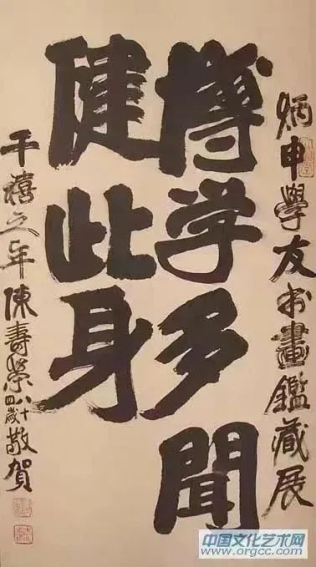 炳申學友書畫鑑藏展
博学多聞
健此身
千禧之年陳壽榮八十四歲敬賀
中国文化艺术网
www.orgcc.com